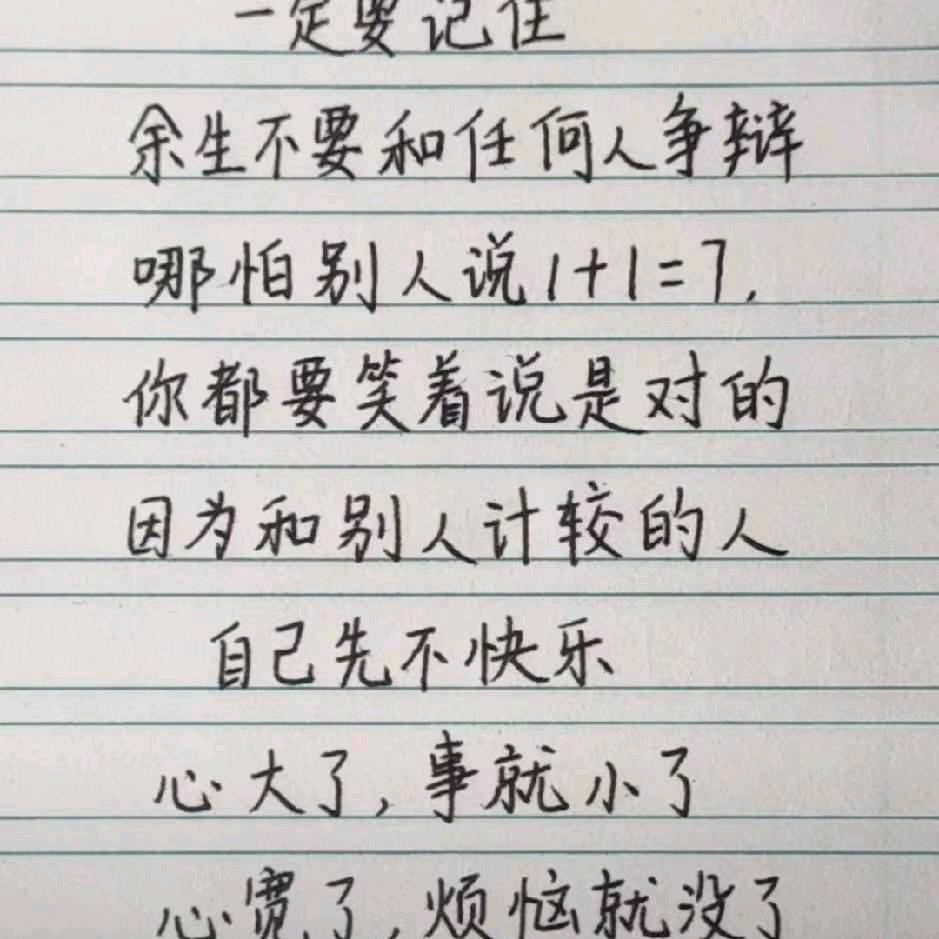 一定要记住
余生不要和任何人争辩
哪怕别人说1+1=7,
你都要笑着说是对的
因为和别人计较的人
自己先不快乐
心大了,事就小了
心宽了,烦恼就没了